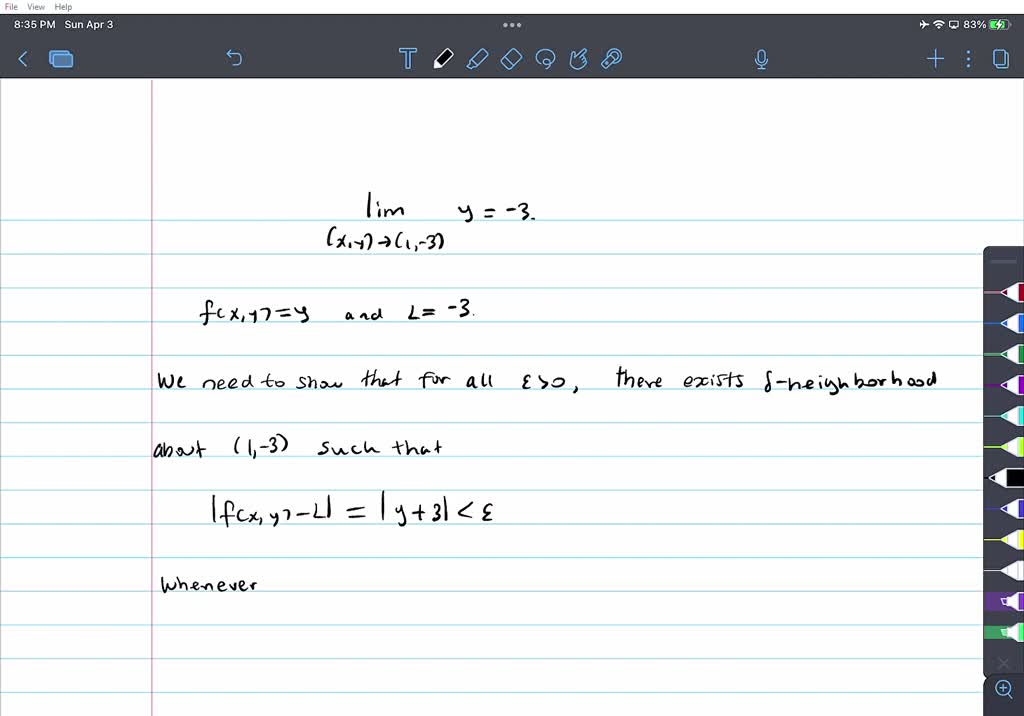 File View Help
8:35 PM Sun Apr 3
83%
T
lim y = -3.
(x,y)→(1,-3)
f(x,y)=y and L= -3.
We need to show that for all ε>0, there exists δ-neighborhood
about (1,-3) such that
|f(x,y)-L| = |y+3| < ε
whenever